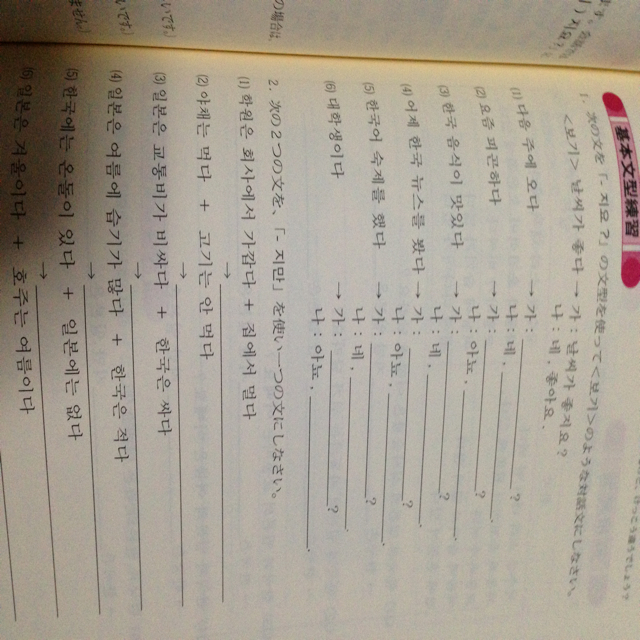 基本文型練習
1. 次の文を「-지요？」の文型を使って＜보기＞のような対話文にしなさい。
＜보기＞ 날씨가 좋다 → 가 : 날씨가 좋지요 ?
나 : 네, 좋아요.
(1) 다음 주에 오다 → 가 : ?
나 : 네, .
(2) 요즘 피곤하다 → 가 : ?
나 : 아뇨, .
(3) 한국 음식이 맛있다 → 가 : ?
나 : 네, .
(4) 어제 한국 뉴스를 봤다 → 가 : ?
나 : 아뇨, .
(5) 한국어 숙제를 했다 → 가 : ?
나 : 네, .
(6) 대학생이다 → 가 : ?
나 : 아뇨, .
2. 次の2つの文を、「-지만」を使い一つの文にしなさい。
(1) 학원은 회사에서 가깝다 + 집에서 멀다
→
(2) 야채는 먹다 + 고기는 안 먹다
→
(3) 일본은 교통비가 비싸다 + 한국은 싸다
→
(4) 일본은 여름에 습기가 많다 + 한국은 적다
→
(5) 한국에는 온돌이 있다 + 일본에는 없다
→
(6) 일본은 겨울이다 + 호주는 여름이다